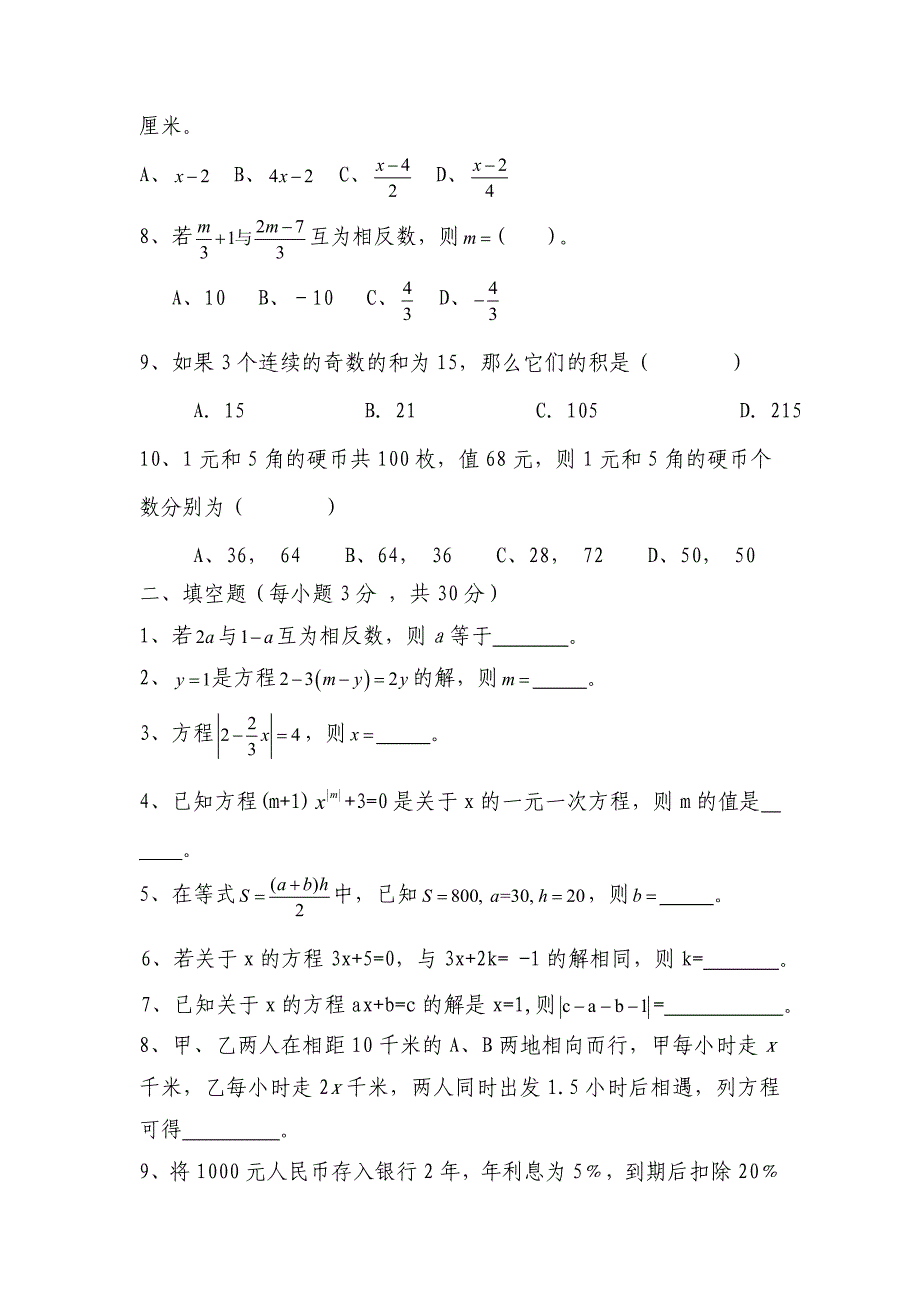 厘米。
A、x-2 B、4x-2 C、\frac{x-4}{2} D、\frac{x-2}{4}
8、若\frac{m}{3}+1与\frac{2m-7}{3}互为相反数，则m=( )。
A、10 B、-10 C、\frac{4}{3} D、-\frac{4}{3}
9、如果3个连续的奇数的和为15，那么它们的积是( )
A. 15 B. 21 C. 105 D. 215
10、1元和5角的硬币共100枚，值68元，则1元和5角的硬币个
数分别为( )
A、36， 64 B、64， 36 C、28， 72 D、50， 50
二、填空题（每小题3分 ，共30分）
1、若2a与1-a互为相反数，则a等于_______。
2、y=1是方程2-3(m-y)=2y的解，则m=_____。
3、方程|2-\frac{2}{3}x|=4，则x=_____。
4、已知方程(m+1)x^{|m|}+3=0是关于x的一元一次方程，则m的值是__
____。
5、在等式S=\frac{(a+b)h}{2}中，已知S=800, a=30, h=20，则b=_____。
6、若关于x的方程3x+5=0，与3x+2k= -1的解相同，则k=_______。
7、已知关于x的方程ax+b=c的解是x=1,则|c-a-b-1|=___________。
8、甲、乙两人在相距10千米的A、B两地相向而行，甲每小时走x
千米，乙每小时走2x千米，两人同时出发1.5小时后相遇，列方程
可得_________。
9、将1000元人民币存入银行2年，年利息为5％，到期后扣除20％